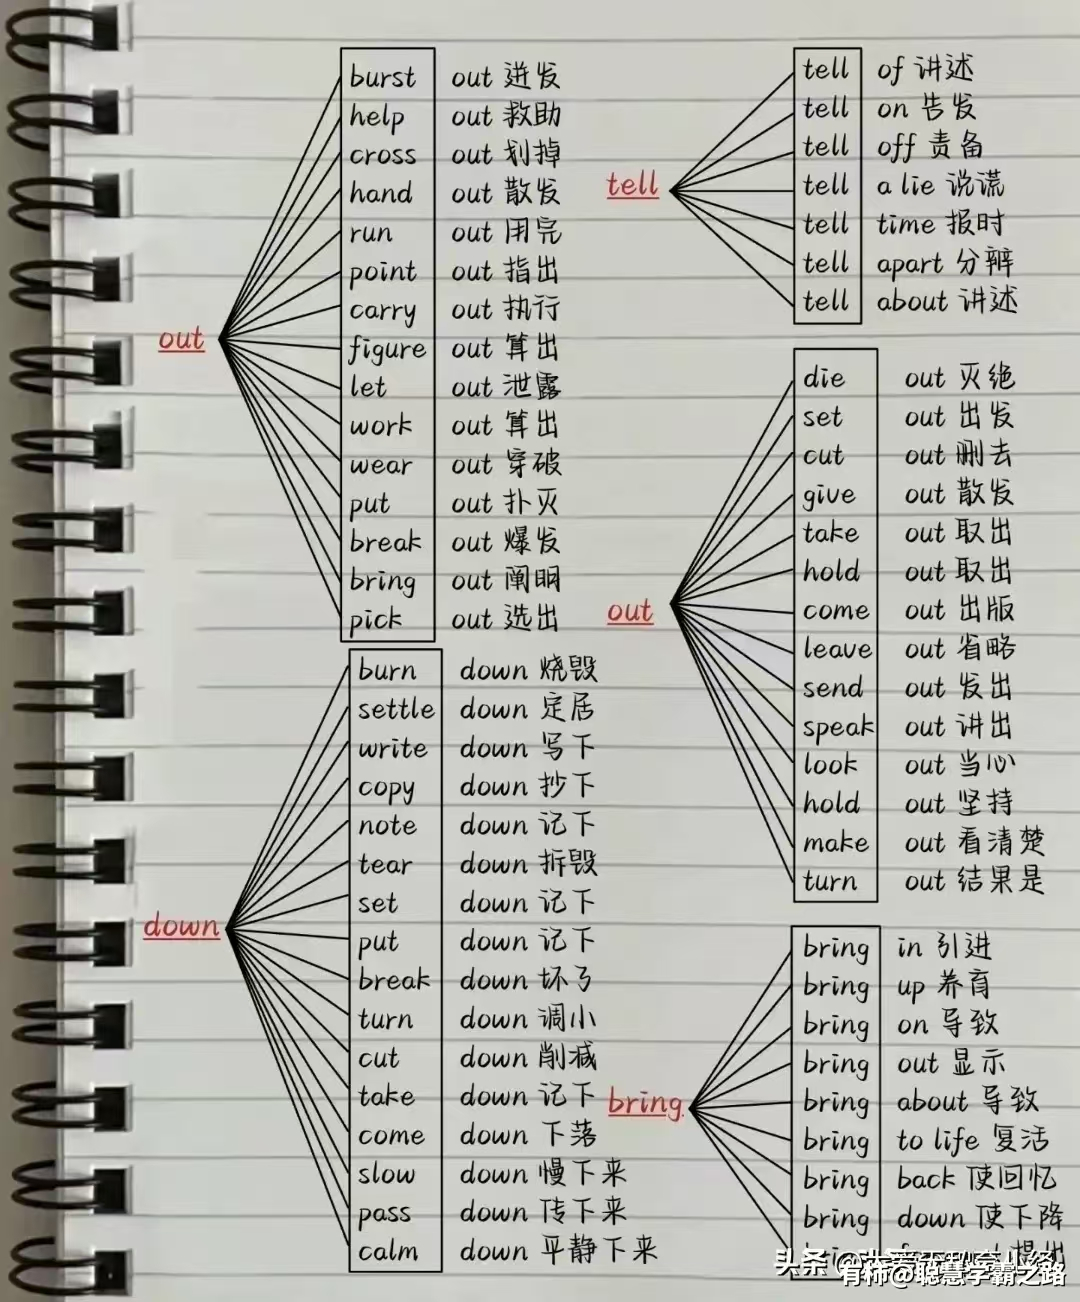 out
burst out 迸发
help out 救助
cross out 划掉
hand out 散发
run out 用完
point out 指出
carry out 执行
figure out 算出
let out 泄露
work out 算出
wear out 穿破
put out 扑灭
break out 爆发
bring out 阐明
pick out 选出
down
burn down 烧毁
settle down 定居
write down 写下
copy down 抄下
note down 记下
tear down 拆毁
set down 记下
put down 记下
break down 坏了
turn down 调小
cut down 削减
take down 记下
come down 下落
slow down 慢下来
pass down 传下来
calm down 平静下来
tell
tell of 讲述
tell on 告发
tell off 责备
tell a lie 说谎
tell time 报时
tell apart 分辨
tell about 讲述
out
die out 灭绝
set out 出发
cut out 删去
give out 散发
take out 取出
hold out 取出
come out 出版
leave out 省略
send out 发出
speak out 讲出
look out 当心
hold out 坚持
make out 看清楚
turn out 结果是
bring
bring in 引进
bring up 养育
bring on 导致
bring out 显示
bring about 导致
bring to life 复活
bring back 使回忆
bring down 使下降
头条
有柿@聪慧学霸之路